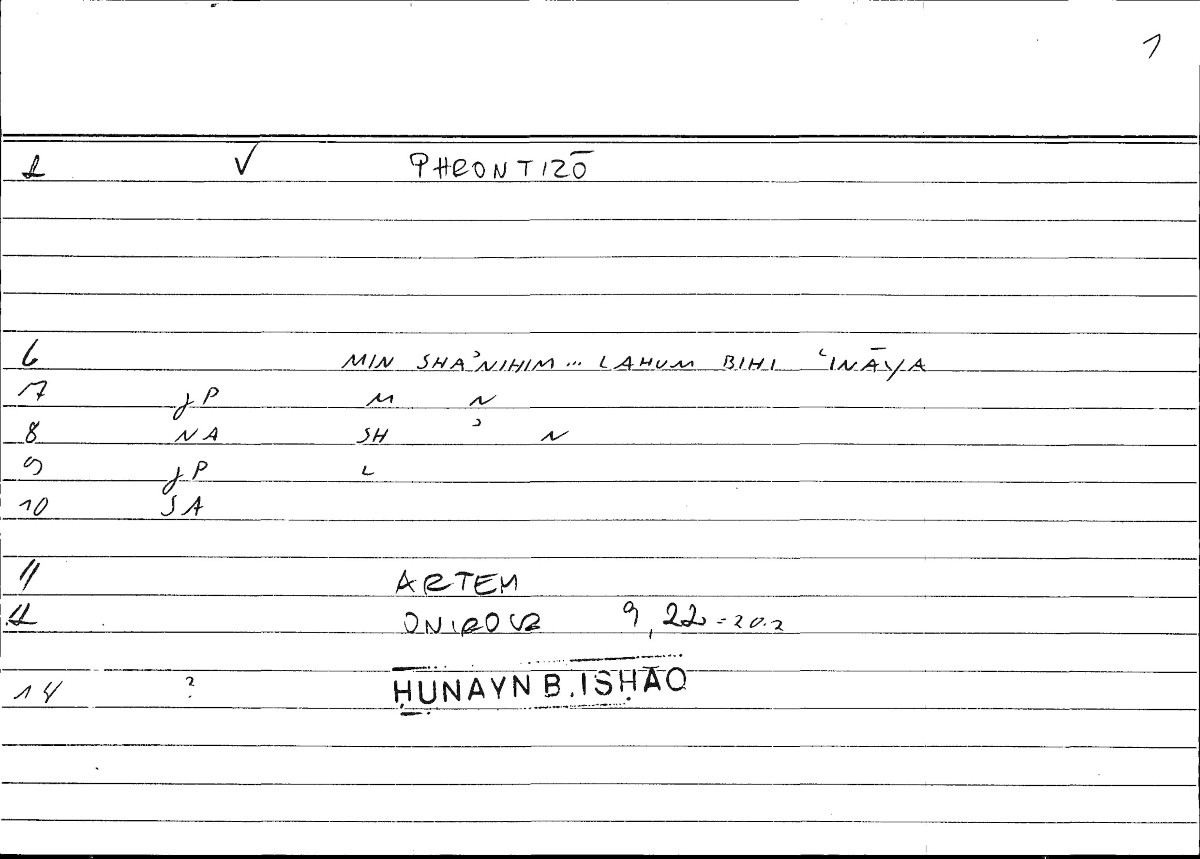 1
1 √ PHRONTIZŌ
6 MIN SHAʾNIHIM... LAHUM BIHI ʿINĀYA
7 JP M N
8 NA SH ʾ N
9 JP L
10 SA
11 ARTEM
12 ONIROCR 9, 22 = 20.2
14 ? ḤUNAYN B. ISḤĀQ